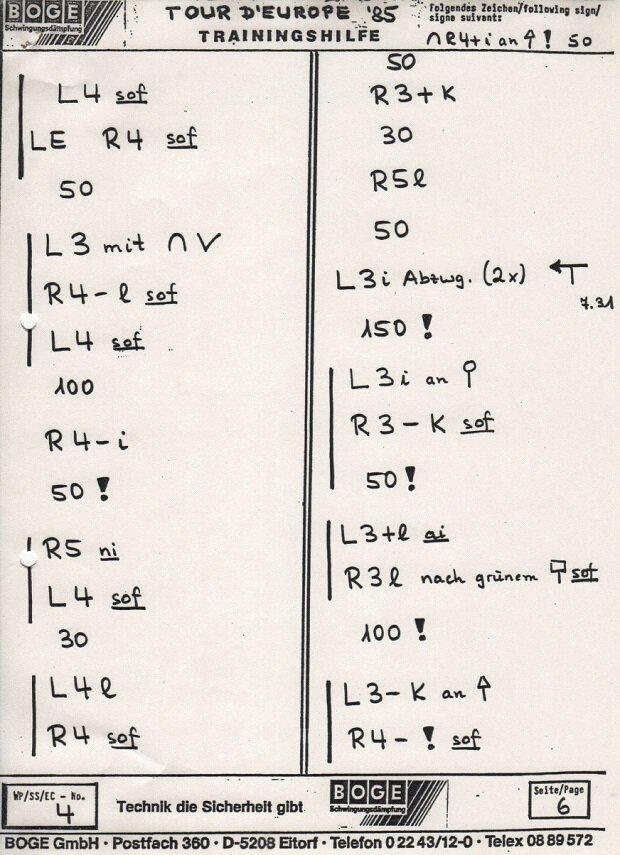 BOGE
Schwingungsdämpfung
TOUR D'EUROPE '85
TRAININGSHILFE
Folgendes Zeichen/following sign/
signe suivant:
∩R4+i an ↑! 50
L4 sof
LE R4 sof
50
L3 mit ∩ V
R4-l sof
L4 sof
100
R4-i
50!
R5 ni
L4 sof
30
L4l
R4 sof
50
R3+K
30
R5l
50
L3i Abzwg. (2x)
7.31
150!
L3i an
R3-K sof
50!
L3+l ai
R3l nach grünem sof
100!
L3-K an
R4-! sof
WP/SS/EC - No.
4
Technik die Sicherheit gibt
BOGE
Schwingungsdämpfung
Seite/Page
6
BOGE GmbH · Postfach 360 · D-5208 Eitorf · Telefon 0 22 43/12-0 · Telex 08 89 572